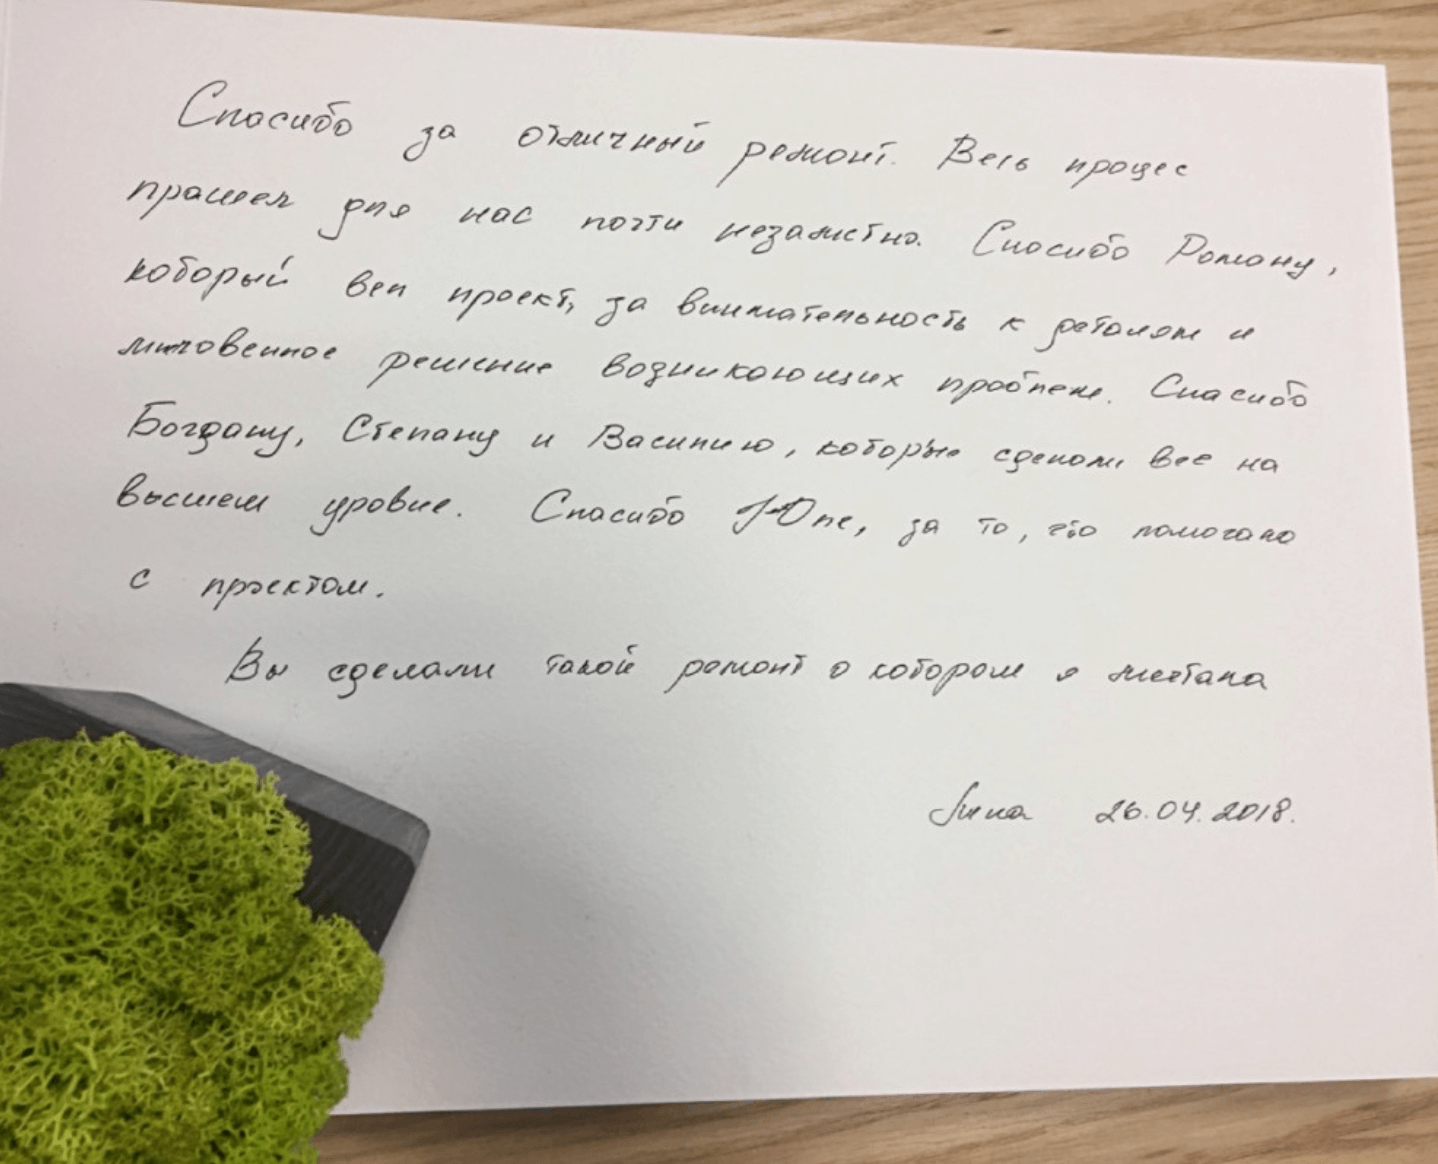 Спасибо за отличный ремонт. Весь процес
прашел для нас почти незаметно. Спасибо Роману,
который вел проект, за внимательность к деталям и
мгновенное решение возникающих проблем. Спасибо
Богдану, Степану и Василию, которые сделали все на
высшем уровне. Спасибо Юле, за то, что помогала
с проектом.
Вы сделали такой ремонт о котором я мечтала
26.04.2018.